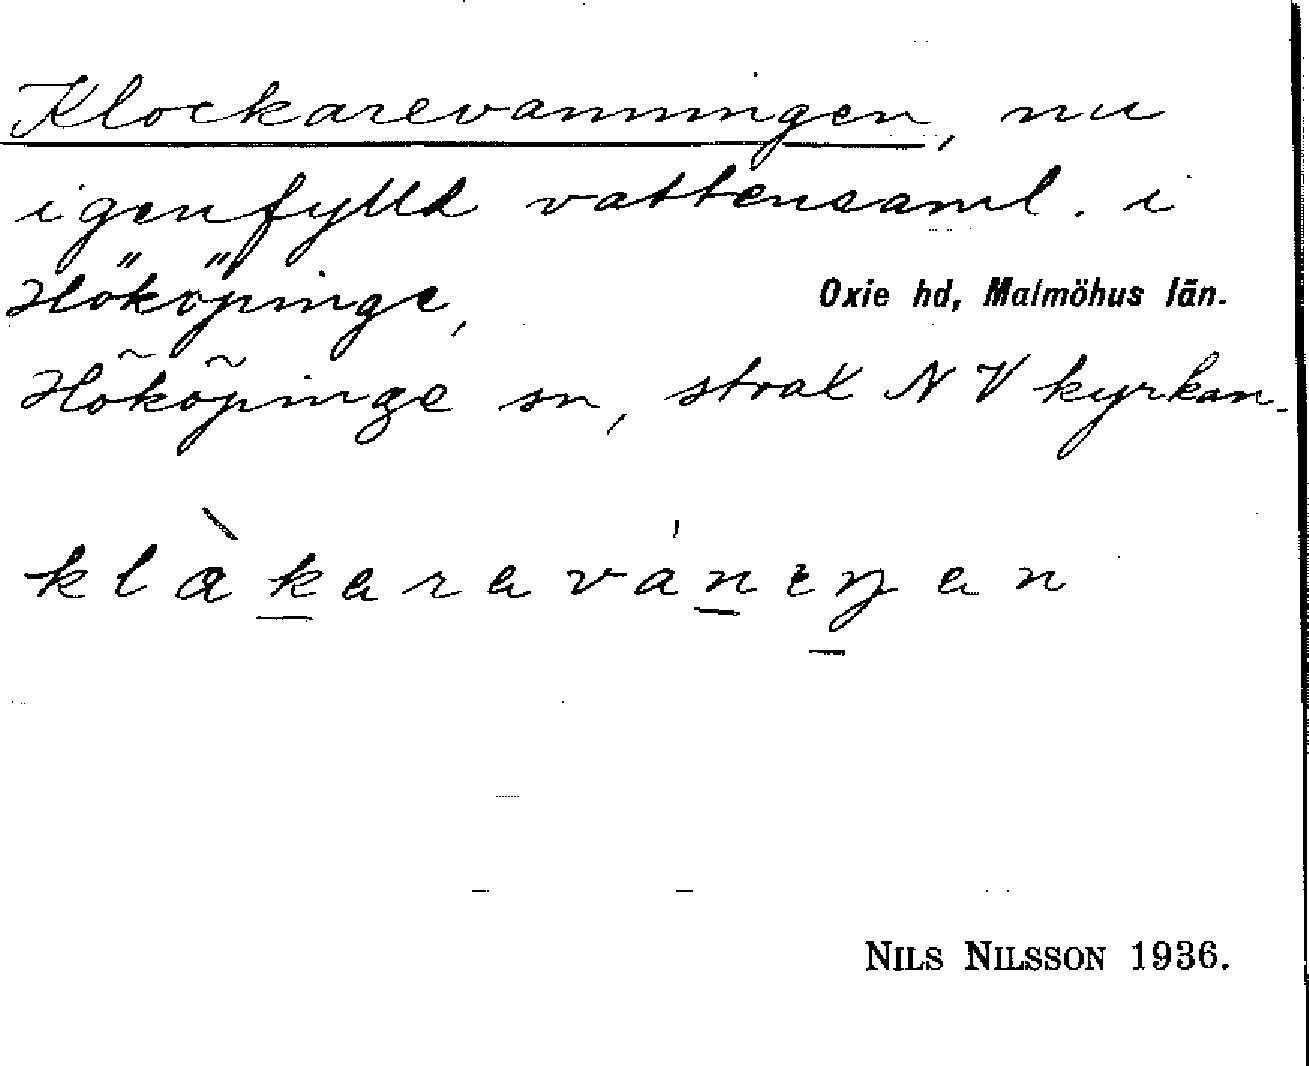 Klockarevanningen, nu
igenfylld vattensaml. i
Hököpinge, Oxie hd, Malmöhus län.
Hököpinge sn, strax NV kyrkan.
klàkaravánıŋan
NILS NILSSON 1936.